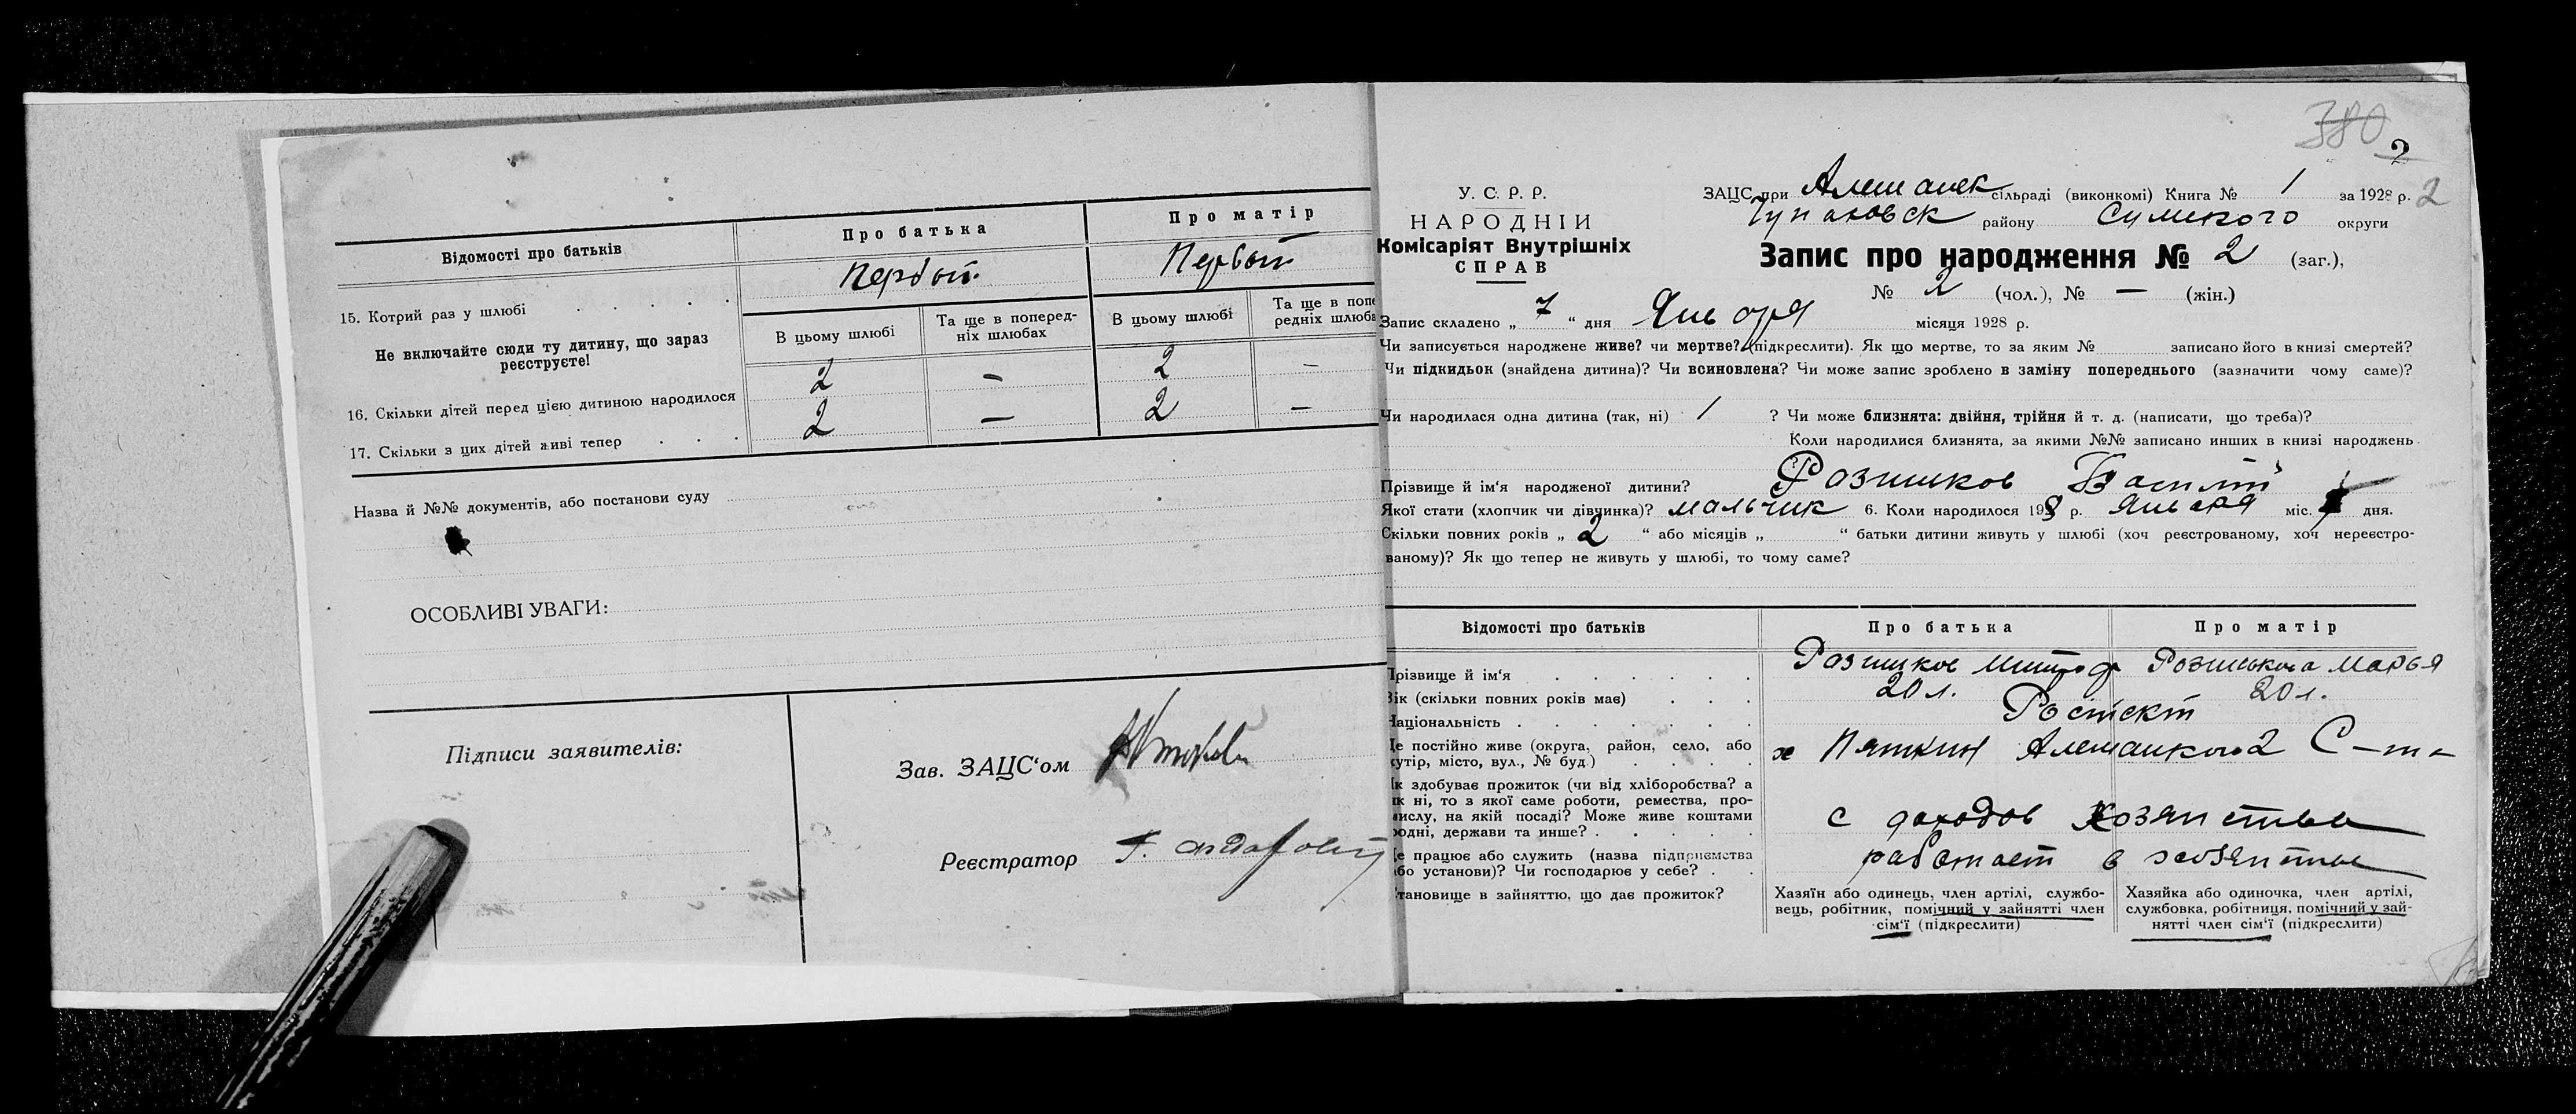 Відомості про батьків
Про батька
Про матір
15. Котрий раз у шлюбі . . . .
Первый
Первый
Не включайте сюди ту дитину, що зараз
реєструєте!
В цьому шлюбі
Та ще в поперед-
ніх шлюбах
В цьому шлюбі
Та ще в попе
редніх шлюба
16. Скільки дітей перед цією дитиною народилося
2 — 2 —
17. Скільки з цих дітей живі тепер . . .
2 — 2 —
Назва й №№ документів, або постанови суду
ОСОБЛИВІ УВАГИ:
Підписи заявителів:
Зав. ЗАЦС‘ом
Реєстратор
380
2
У. С. Р. Р.
НАРОДНІЙ
Комісаріят Внутрішніх
СПРАВ
ЗАЦС при Алешанск сільраді (виконкомі) Книга № 1 за 1928 р. 2
району Сумского округи
Запис про народження № 2 (заг.),
№ 2 (чол.), № — (жін.)
Запис складено „ 7 “ дня Января місяця 1928 р.
Чи записується народжене живе? чи мертве? (підкреслити). Як що мертве, то за яким № записано його в книзі смертей?
Чи підкидьок (знайдена дитина)? Чи всиновлена? Чи може запис зроблено в заміну попереднього (зазначити чому саме)?
Чи народилася одна дитина (так, ні) 1 ? Чи може близнята: двійня, трійня й т. д. (написати, що треба)?
Коли народилися близнята, за якими №№ записано инших в книзі народжень
Прізвище й ім‘я народженої дитини? Розшиков
Якої стати (хлопчик чи дівчинка)? мальчик 6. Коли народилося 1928 р. Января міс. дня.
Скільки повних років „ 2 “ або місяців „ “ батьки дитини живуть у шлюбі (хоч реєстрованому, хоч нереєстро-
ваному)? Як що тепер не живуть у шлюбі, то чому саме?
Відомості про батьків
Про батька
Про матір
Прізвище й ім‘я . . . . . .
Марья
Вік (скільки повних років має) . . .
20 л. 20 л.
Національність . . . . . . .
Де постійно живе (округа, район, село, або
хутір, місто, вул., № буд.) . . . .
х Пяткин
Як здобуває прожиток (чи від хліборобства? а
як ні, то з якої саме роботи, ремества, про-
мислу, на якій посаді? Може живе коштами
родні, держави та инше? . . . . .
с доходов хозяйства
Де працює або служить (назва підприємства
або установи)? Чи господарює у себе? . .
работает в хозяйстве
Становище в зайняттю, що дає прожиток?
Хазяїн або одинець, член артілі, службо-
вець, робітник, помічний у зайнятті член
сім‘ї (підкреслити)
Хазяйка або одиночка, член артілі,
службовка, робітниця, помічний у зай-
нятті член сім‘ї (підкреслити)